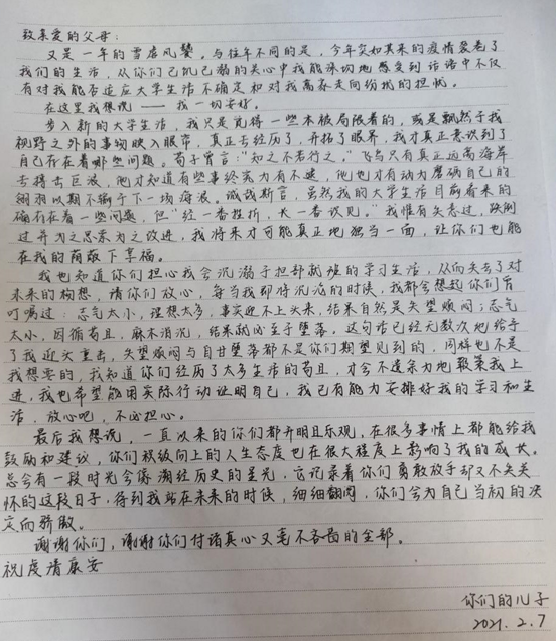 致亲爱的父母：
又是一年的雪虐风饕。与往年不同的是，今年突如其来的疫情袭卷了
我们的生活，从你们已饥已溺的关心中我能深切地感受到话语中不仅
有对我能否适应大学生活不确定和对我离乔走向纷扰的担忧。
在这里我想说——我一切安好。
步入新的大学生活，我只是觉得一些本被局限着的，或是飘然于我
视野之外的事物映入眼帘，真正去经历了，开拓了眼界，我才真正意识到了
自己存在着哪些问题。荀子曾言："知之不若行之，"飞鸟只有真正远离海岸
去搏击巨浪，他才知道有些事终究力有不逮，他也才有动力磨砺自己的
翅羽以期不输于下一场海浪。诚哉斯言，虽然我的大学生活目前看来的
确存在着一些问题，但"经一番挫折，长一番识见。"我惟有失志过，跌倒
过并为之思索为之改进，我将来才可能真正地独当一面，让你们也能
在我的荫蔽下享福。
我也知道你们担心我会沉溺于按部就班的学习生活，从而失去了对
未来的构想，请你们放心，每当我即将沉沦的时候，我都会想起你们曾
叮嘱过：志气太小，理想太多，事实迎不上头来，结果自然是失望烦闷；志气
太小，因循苟且，麻木消沉，结果就必至于堕落。这句话已经无数次地给予
了我迎头重击，失望烦闷与自甘堕落都不是你们期望见到的，同样也不是
我想要的，我知道你们经历了太多生活的苟且，才会不遗余力地鞭策我上
进，我也希望能用实际行动证明自己，我已有能力安排好我的学习和生
活，放心吧，不必担心。
最后我想说，一直以来的你们都开明且乐观，在很多事情上都能给我
鼓励和建议，你们积极向上的人生态度也在很大程度上影响了我的成长。
总会有一段时光会像溯经历史的星光，它记录着你们勇敢放手却又不失关
怀的这段日子，待到我站在未来的时候，细细翻阅，你们会为自己当初的决
定而骄傲。
谢谢你们，谢谢你们付诸真心又毫不吝啬的全部。
祝虔清康安
你们的儿子
2021.2.7